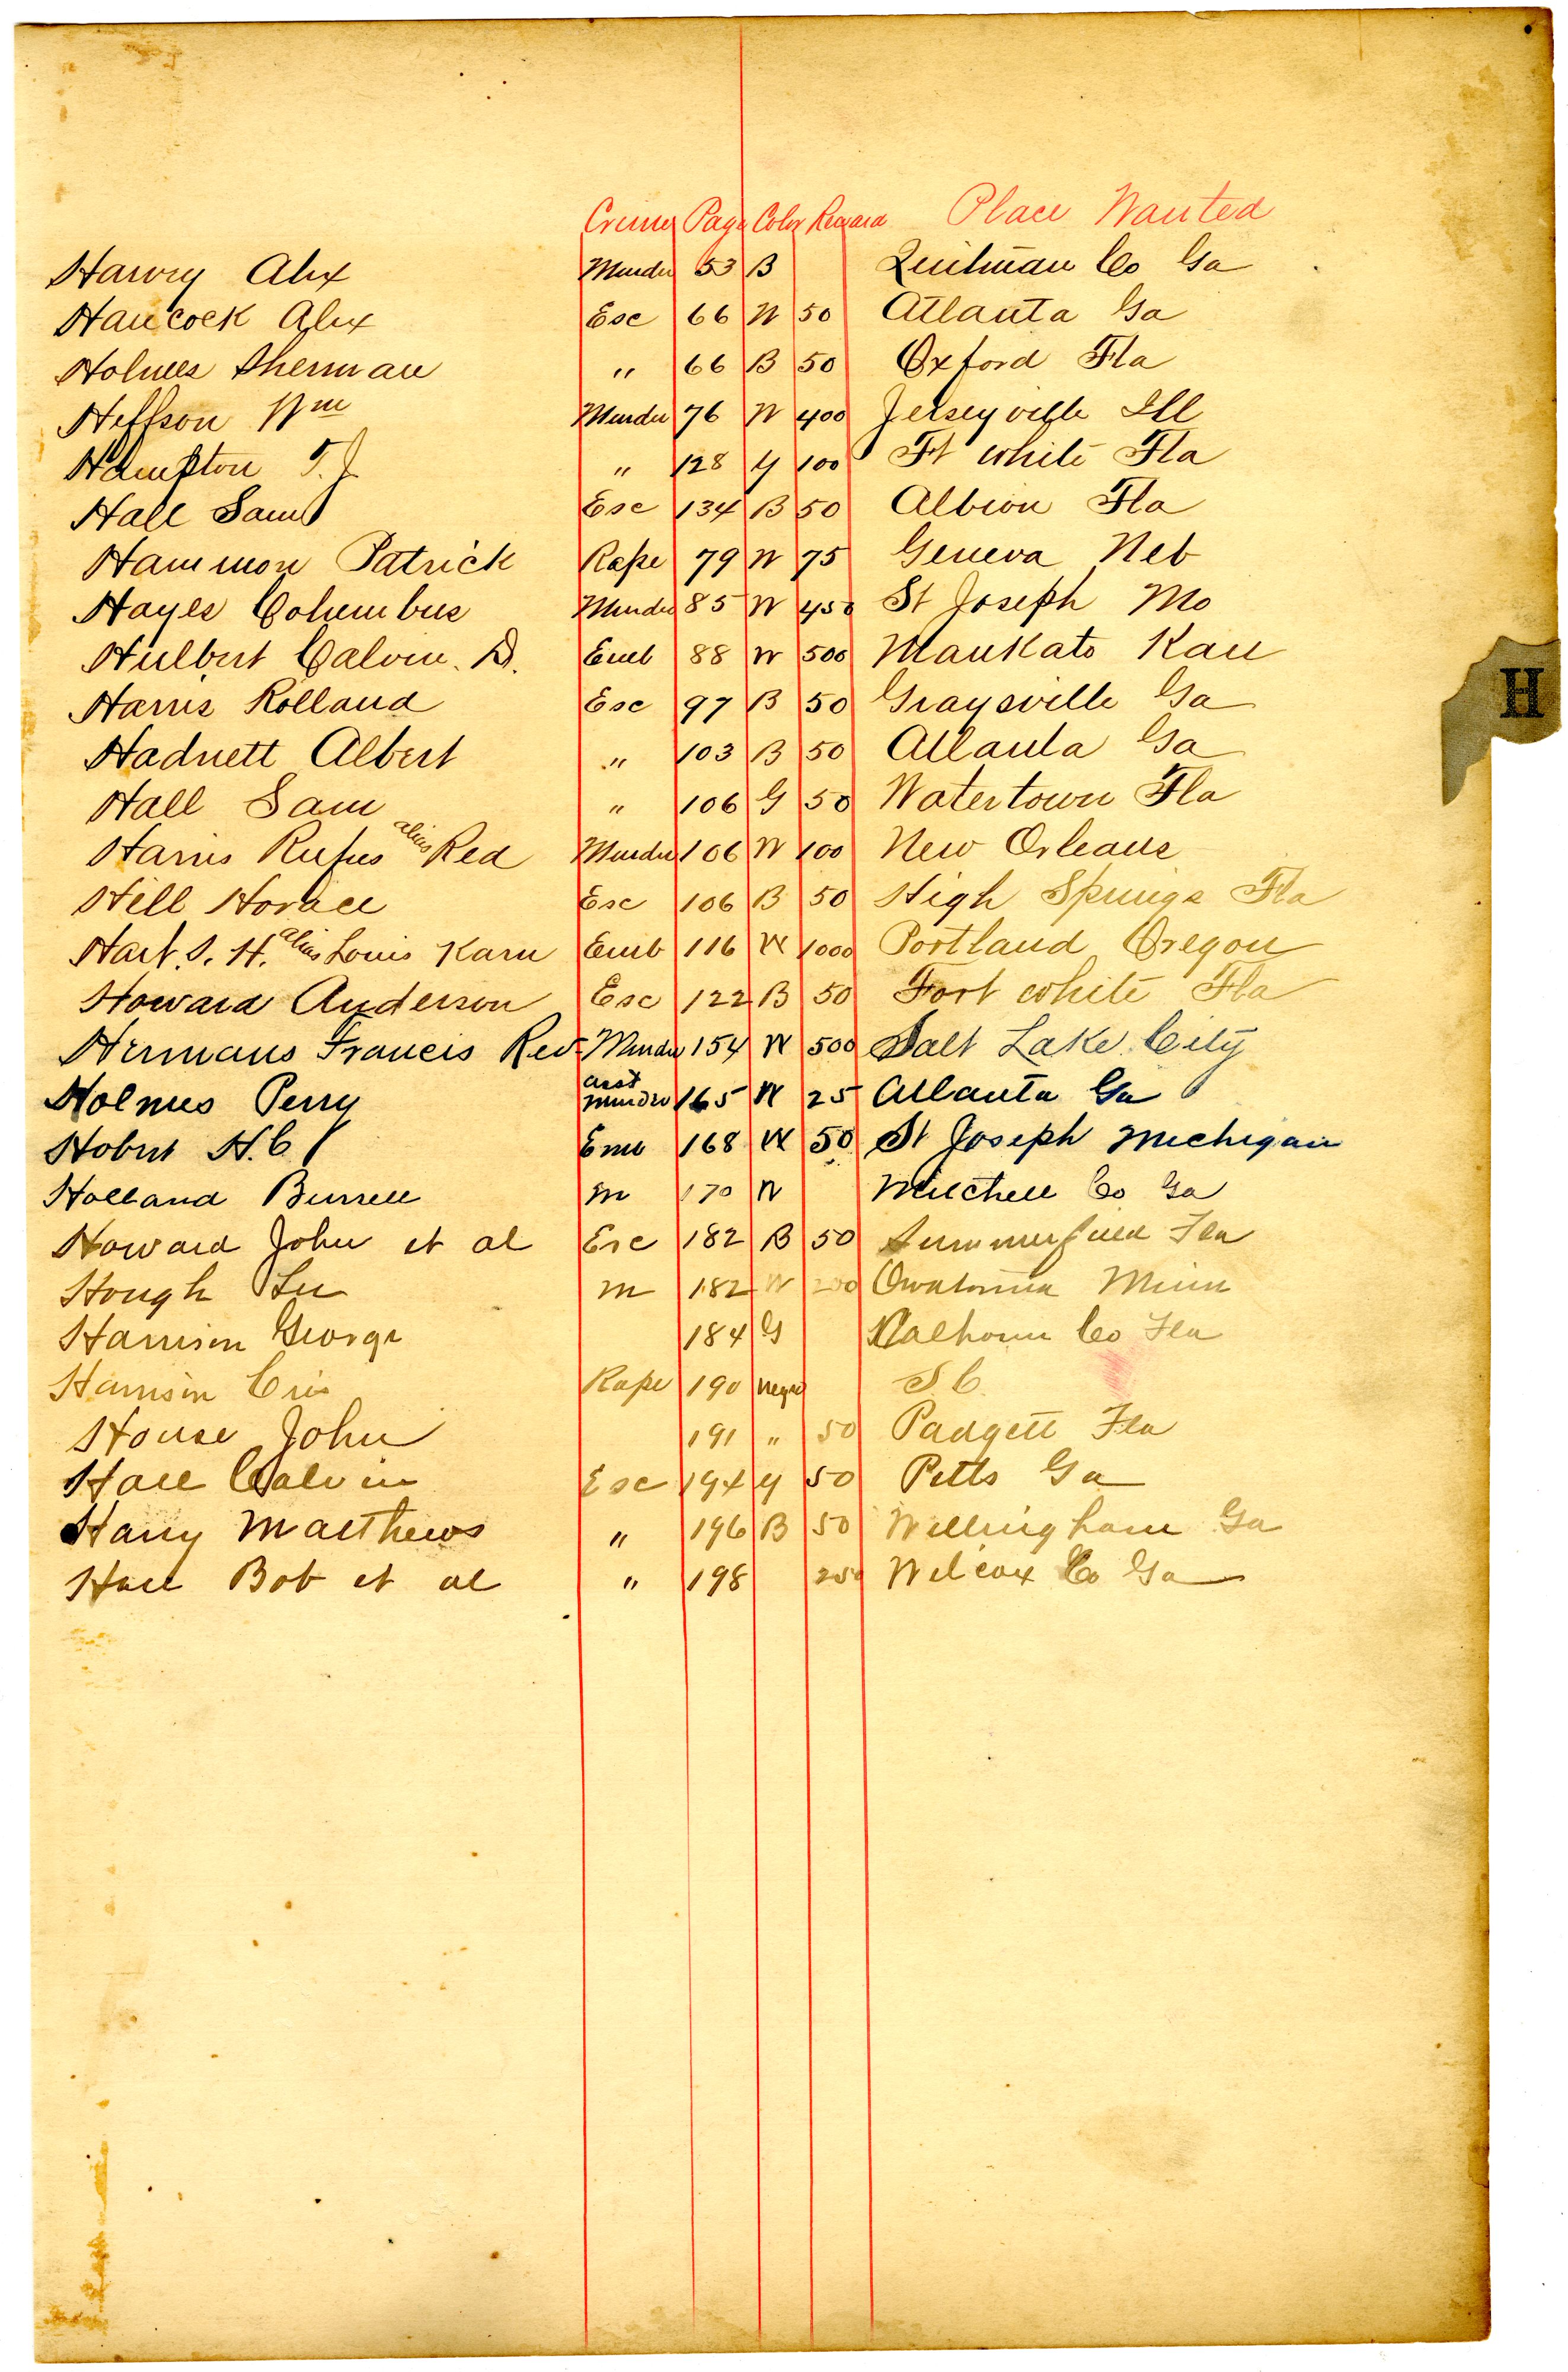 Crime Page Color Reward Place Wanted
Alex Murder 53 B Quitman Co Ga
Hancock Alex Esc 66 W 50 Atlanta Ga
Holmes Sherman " 66 B 50 Oxford Fla
Heffson Wm Murder 76 W 400 Jerseyville Ill
Hampton T. J. " 128 Y 100 Ft White Fla
Hall Sam Esc 134 B 50 Albion Fla
Hammon Patrick Rape 79 W 75 Geneva Neb
Hayes Columbus Murder 85 W 450 St Joseph Mo
Hulbert Calvin. D. Emb 88 W 500 Mankato Kan
Harris Rolland Esc 97 B 50 Graysville Ga
Hadnett Albert " 103 B 50 Atlanta Ga
Hall Sam " 106 G 50 Watertown Fla
Harris Rufus alias Red Murder 106 W 100 New Orleans
Hill Horace Esc 106 B 50 High Springs Fla
Hart. S. H. alias Louis Karn Emb 116 W 1000 Portland Oregon
Howard Anderson Esc 122 B 50 Fort White Fla
Hermans Francis Rev Murder 154 W 500 Salt Lake City
Holmes Perry asst murder 165 W 25 Atlanta Ga
Hobert H. C Emb 168 W 50 St Joseph Michigan
Holland Burrell m 170 W Mitchell Co Ga
Howard John et al Esc 182 B 50 Summerfield Fla
Hough Lee m 182 W 200 Owatonna Minn
Harrison George 184 G Calhoun Co Fla
Harrison Cris Rape 190 negro S. C.
House John 191 " 50 Padgett Fla
Hall Calvin Esc 194 Y 50 Pitts Ga
Harry Matthews " 196 B 50 Willingham Ga
Hall Bob et al " 198 250 Wilcox Co Ga
H